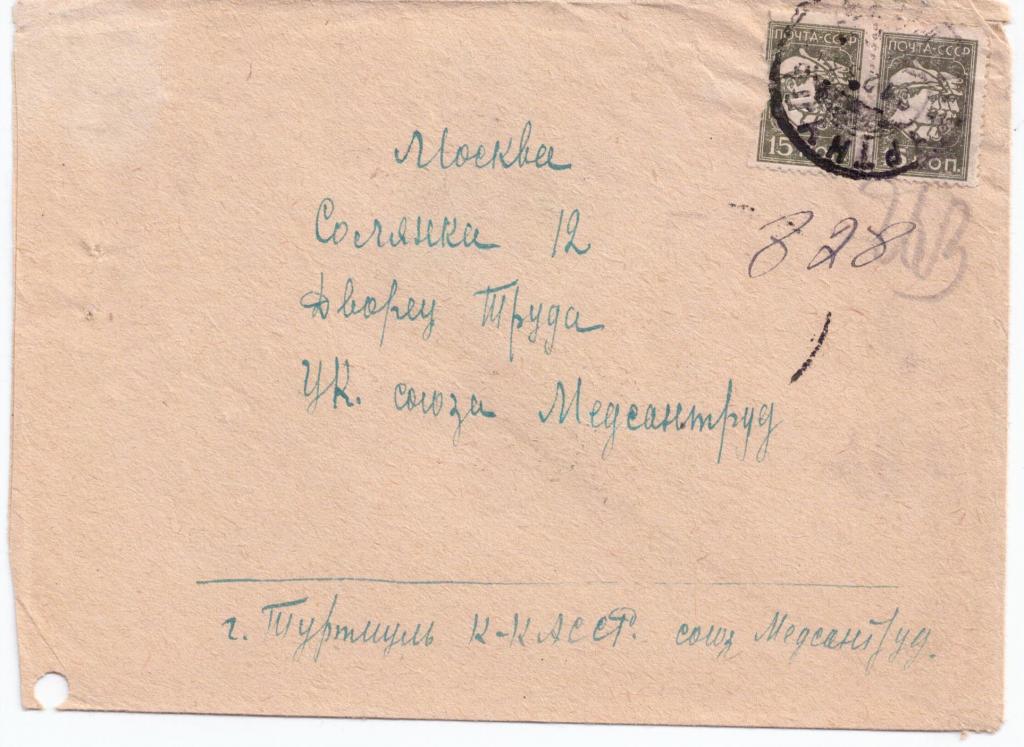 ПОЧТА-СССР ПОЧТА-СССР
15 КОП.
Москва
Солянка 12
828
Дворец Труда
ЦК. союза Медсантруд
г. Турткуль К-КАССР. союз Медсантруд.